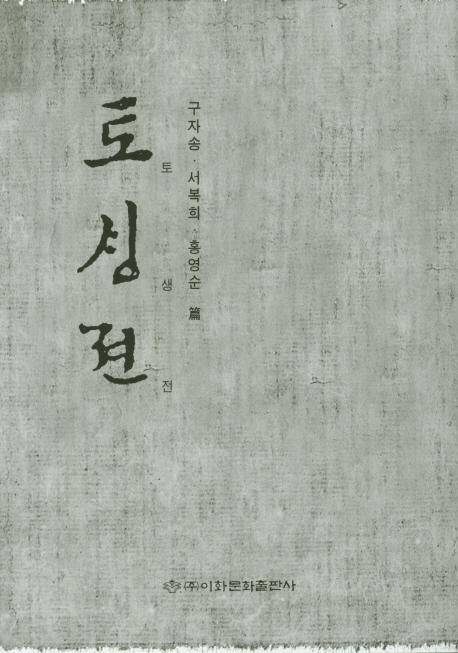 토ᄉᆡᆼ젼
토생전
구자송 · 서복희 · 홍영순 篇
㈜이화문화출판사